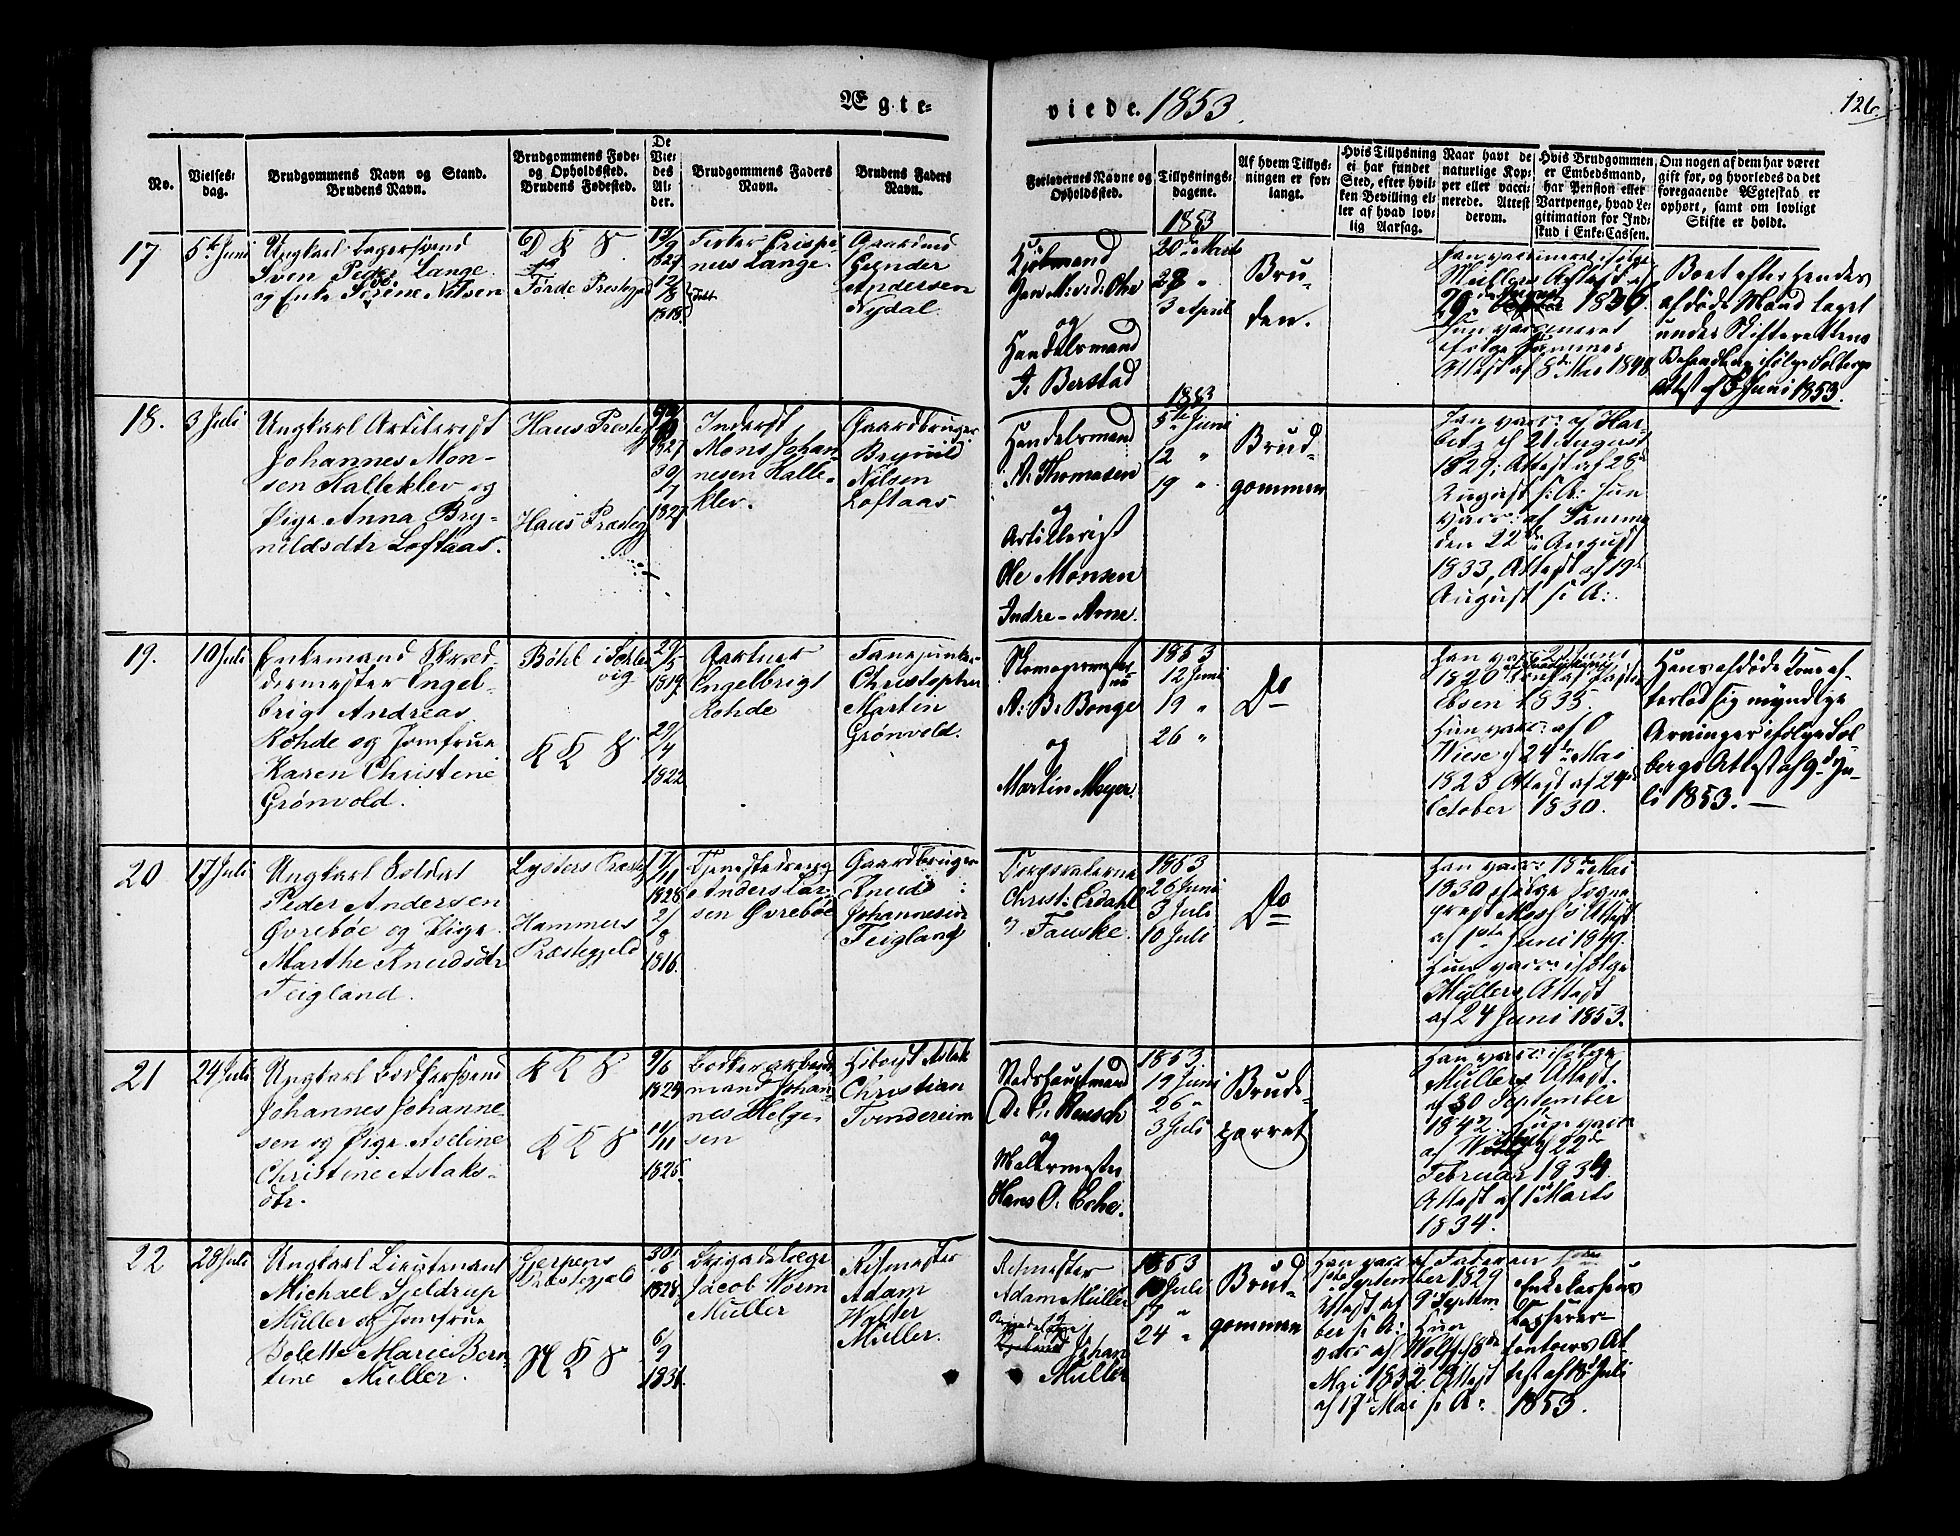 Ægte-
viede. 1853.
126.
No.
Vielses-
dag.
Brudgommens Navn og Stand.
Brudens Navn.
Brudgommens Føde-
og Opholdssted.
Brudens Fødested.
De
Vie-
des
Al-
der.
Brudgommens Faders
Navn.
Brudens Faders
Navn.
Forlovernes Navne og
Opholdssted.
Tillysnings-
dagene.
Af hvem Tillys-
ningen er for-
langt.
Hvis Tillysning
ei har fundet
Sted, efter hvil-
ken Bevilling el-
ler af hvad lov-
lig Aarsag.
Naar havt de
naturlige Kop-
per eller vacci-
nerede. Attest
derom.
Hvis Brudgommen
er Embedsmand,
har Pension eller
Vartpenge, hvad Le-
gitimation for Ind-
skud i Enke-Cassen.
Om nogen af dem har været
gift før, og hvorledes da det
foregaaende Ægteskab er
ophørt, samt om lovligt
Skifte er holdt.
17
5te Juni
Ungkarl
Sven Peder Lange
og Enke Sørine Nilsen
D K S
Førde Præstegjd
12/9
1827
12/8
1818
Lange
Gaardmd
Andersen
Nydal.
Jan M. v. d. Ohe
og
Handelsmand
J. Berstad
1853
20de Marts
28 "
3 April
Bru-
den.
Müllers Attest af
Hun vaccineret
Attest af 8de Mai 1848
Boet efter Hendes
afdøde Mand taget
under Skifterettens
Behandling ifølge Solbergs
Attest af 5 Juni 1853.
18.
3 Juli
Ungkarl Artilerist
Johannes Mon-
sen Kalleklev og
Pige Anna Bry-
nildsdtr Loftaas.
Haus Præstegj
Haus Præstegj
1827
30/7
1827
Inderst
Mons Johan-
nesen Kalle-
klev.
Gaardbruger
Brynild
Nilsen
Loftaas
Handelsmand
A. Thomasen
og
Artillerist
Ole Monsen
Indre-Arne.
1853
5te Juni
12 "
19 "
Brud-
gommen
Han vacc: af Har-
1829; Attest af 28de
August s: A: Hun
vacc: af Tamme
den 22de August
1833, Attest af 19de
August s: A:
19.
10 Juli
Enkemand Skræd-
dermester Engel-
brigt Andreas
Rohde og Jomfrue
Karen Christine
Grønvold.
K K S
29/5
1819
29/4
1822
Gartner
Engelbrigt
Rohde
Fanejunker
Christopher
Martin
Grønvold.
A: B: Bonge
og
Martin Meyer.
1853
12 Juni
19 "
26 "
Do
Han vacc 21 Juni
1820
Ebsen 1835.
Hun vacc: af O
Wiese d 24de Mai
1823 Attest af 24de
October 1830.
Hans afdøde Kone ef-
terlod sig myndige
Arvinger ifølge Sol-
bergs Attest af 9de Ju-
li 1853. —
20
17 Juli
Ungkarl Soldat
Peder Andersen
Øvrebøe og Pige
Marthe Knudsdtr
Teigland.
Lysters Præstegj
Hammers
Præstegjeld
17/11
1828
2/8
1816.
Anders Lar-
sen Øvrebøe
Gaardbruger
Knud
Johannesen
Teigland
Christ: Erdahl
og Fauske.
1853
26 Juni
3 Juli
10 Juli
Do
Han vacc: 18de Mai
1830 ifølge Sogne-
præst Attest
af 1ste Juni 1849.
Hun vacc: ifølge
Müllers Attest
af 24 Juni 1853.
21
24 Juli
Ungkarl Bødkersvend
Johannes Johanne-
sen og Pige Aseline
Christine Aslaks-
dtr.
K K S
K K S
9/6
1824
14/11
1825.
Bødkerarbeids-
mand Johan-
nes Helge-
sen
Aslak
Christian
Tvindereim
Stadshauptmand
C. A. Reusch
og
Malermester
Hans O. Eche.
1853
19 Juni
26 "
3 Juli
Brude-
parret
Han vacc: ifølge
Müllers Attest.
af 30 September
1842 Hun vacc:
af 22de
Februar 1834.
Attest af 1 Marts
1834.
22
28 Juli
Ungkarl Lieutenant
Michael Sjeldrup
Müller og Jomfrue
Bolette Marie Bern-
tine Müller.
Gjerpens
Præstegjeld
K S
30/6
1828
6/9
1831.
Brigadelæge
Jacob Worm
Müller
Ritmester
Adam
Walter
Müller.
Ritmester
Adam Müller
og
Johan
Müller
1853
10 Juli
17 "
24 "
Brud-
gommen
Han vacc af Faderen
1ste September 1829
Attest af 9de Septem-
ber s: A: Hun
vacc af Wolf d 8de
Mai 1832. Attest
af 17de Mai s: A:
Enkekassens
Kasserer-
kontoirs At-
test af 18de Juli
1853.